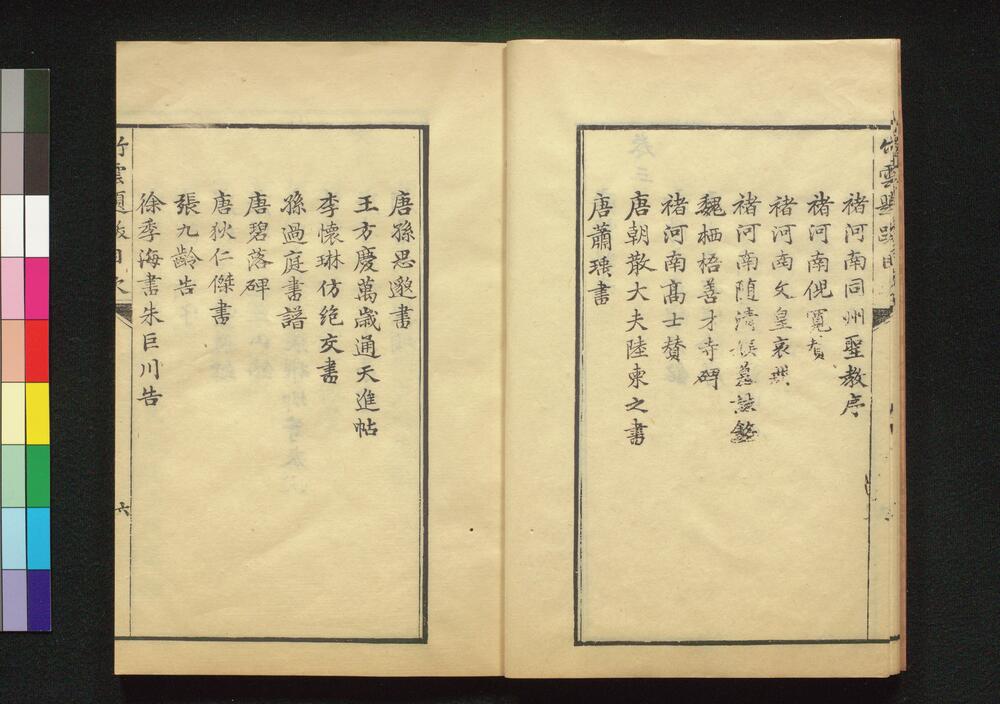 褚河南同州聖教序
褚河南倪寛贊
褚河南文皇哀冊
褚河南隨清娛墓誌銘
魏栖梧善才寺碑
褚河南髙士賛
唐朝散大夫陸柬之書
唐蕭瑀書
唐孫思邈書
王方慶萬歳通天進帖
李懷琳仿絶交書
孫過庭書譜
唐碧落碑
唐狄仁傑書
張九齡告
徐季海書朱巨川告
竹雲題跋目次
六